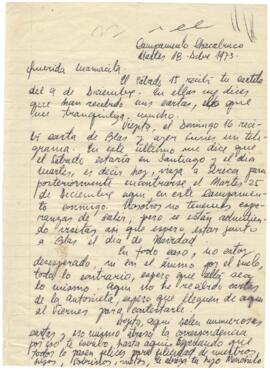 Campamento Chacabuco
Martes 18 - Dibre 1973.-
Querida Mamacita:
El sábado 15 recibí tu cartita
del 9 de Diciembre. En ella me dices
que han recibido mis cartas, ello que
me tranquiliza mucho.
Viejita, el Domingo 16 reci
bí carta de Blas y ayer Lunes un tele-
grama. En este último me dice que
el Sábado estaría en Santiago y el día
Martes, es decir hoy, viaja a Arica para
posteriormente encontrarse el Martes 25
de Diciembre aquí en este Campamento
conmigo. Nosotros no tenemos espe-
ranzas de salir, pero se están admitien
do visitas así que espero estar junto
a Blas el día de Navidad.
En todo caso, no estoy
desesperado, ni con el ánimo por el suelo,
todo lo contrario, espero que Uds sea
lo mismo. Aquí no he recibido cartas
de la Antonieta, espero que lleguen de aquí
al Viernes para contestarle.
Viejita, aquí salen numerosas
cartas y no mismo
por eso te escribo, hasta aquí esperando que
todos lo pasen felices para felicidad de nuestros
hijos, sobrinos, nietos, te abraza tu hijo